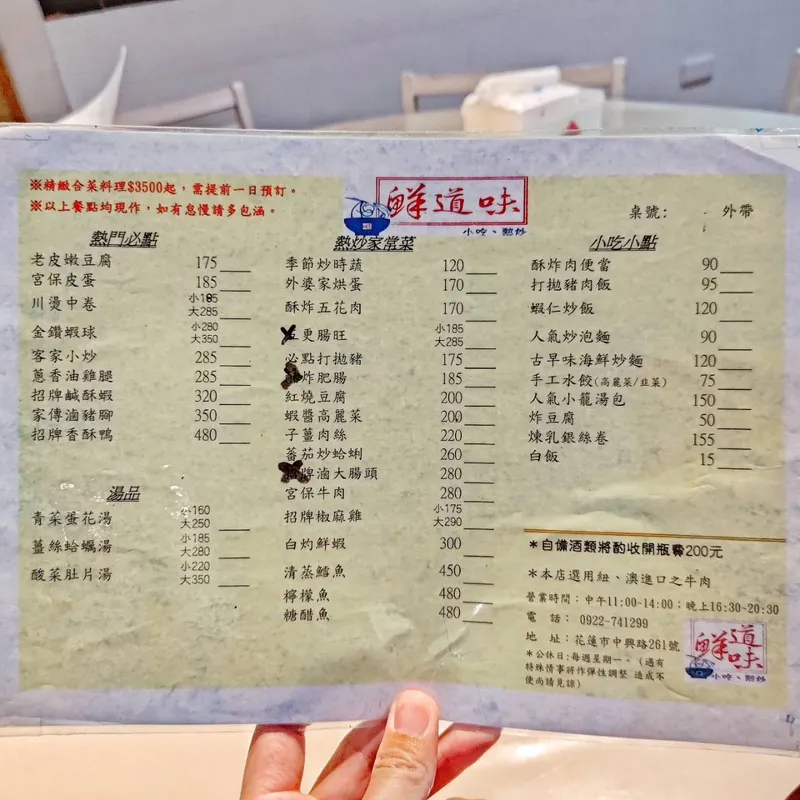 ※精緻合菜料理$3500起，需提前一日預訂。
※以上餐點均現作，如有怠慢請多包涵。
鮮道味
小吃、熱炒
桌號：
外帶
熱門必點
老皮嫩豆腐 175
宮保皮蛋 185
川燙中卷 小185 大285
金鑽蝦球 小280 大350
客家小炒 285
蔥香油雞腿 285
招牌鹹酥蝦 320
家傳滷豬腳 350
招牌香酥鴨 480
湯品
青菜蛋花湯 小160 大250
薑絲蛤蠣湯 小185 大280
酸菜肚片湯 小220 大350
熱炒家常菜
季節炒時蔬 120
外婆家烘蛋 170
酥炸五花肉 170
更腸旺 小185 大285
必點打拋豬 175
炸肥腸 185
紅燒豆腐 200
蝦醬高麗菜 200
子薑肉絲 220
蕃茄炒蛤蜊 260
牌滷大腸頭 280
宮保牛肉 280
招牌椒麻雞 小175 大290
白灼鮮蝦 300
清蒸鱈魚 450
檸檬魚 480
糖醋魚 480
小吃小點
酥炸肉便當 90
打拋豬肉飯 95
蝦仁炒飯 120
人氣炒泡麵 90
古早味海鮮炒麵 120
手工水餃(高麗菜/韭菜) 75
人氣小籠湯包 150
炸豆腐 50
煉乳銀絲卷 155
白飯 15
*自備酒類將酌收開瓶費200元
*本店選用紐、澳進口之牛肉
營業時間：中午11:00-14:00；晚上16:30-20:30
電 話： 0922-741299
地 址：花蓮市中興路261號
*公休日:每週星期一。(遇有
特殊情事將作彈性調整 造成不
便尚請見諒)
鮮道味
小吃、熱炒